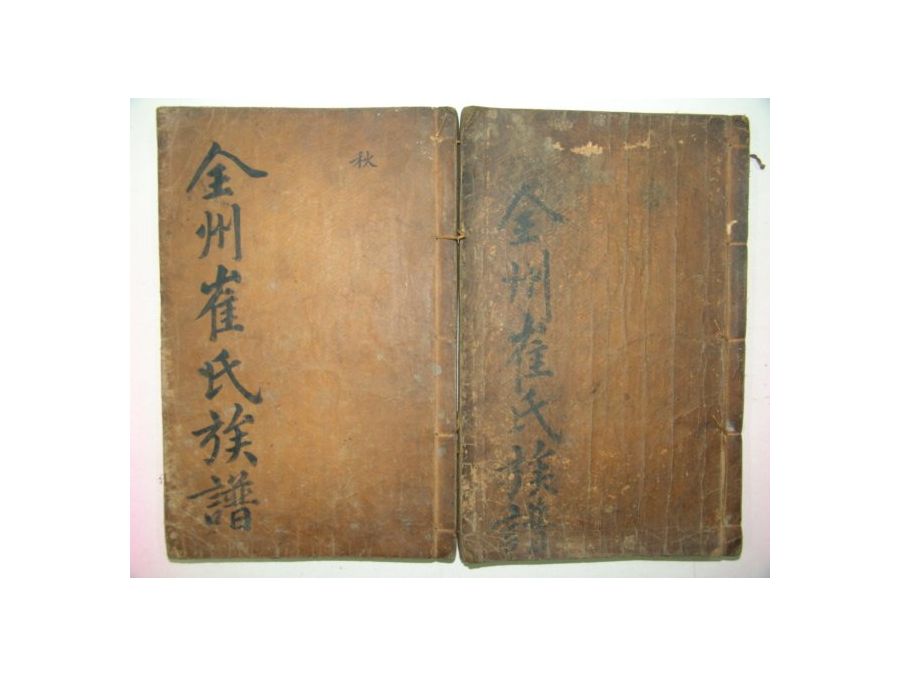 全州崔氏族譜
秋
全州崔氏族譜